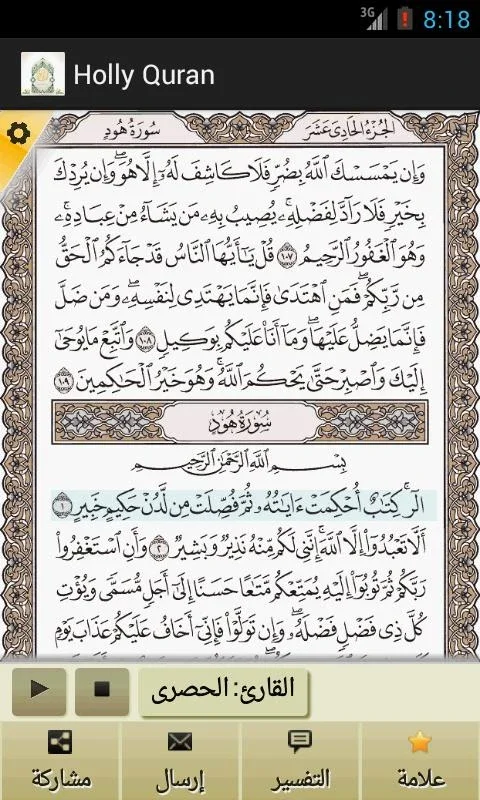 3G
8:18
Holly Quran
سُورَةُ هُودٍ
الجُزءُ الحَادِى عَشَرَ
وَإِن يَمْسَسْكَ ٱللَّهُ بِضُرٍّ فَلَا كَاشِفَ لَهُۥٓ إِلَّا هُوَ ۖ وَإِن يُرِدْكَ
بِخَيْرٍ فَلَا رَآدَّ لِفَضْلِهِۦ ۚ يُصِيبُ بِهِۦ مَن يَشَآءُ مِنْ عِبَادِهِۦ ۚ
وَهُوَ ٱلْغَفُورُ ٱلرَّحِيمُ ١٠٧ قُلْ يَٰٓأَيُّهَا ٱلنَّاسُ قَدْ جَآءَكُمُ ٱلْحَقُّ
مِن رَّبِّكُمْ ۖ فَمَنِ ٱهْتَدَىٰ فَإِنَّمَا يَهْتَدِى لِنَفْسِهِۦ ۖ وَمَن ضَلَّ
فَإِنَّمَا يَضِلُّ عَلَيْهَا ۖ وَمَآ أَنَا۠ عَلَيْكُم بِوَكِيلٍ ١٠٨ وَٱتَّبِعْ مَا يُوحَىٰٓ
إِلَيْكَ وَٱصْبِرْ حَتَّىٰ يَحْكُمَ ٱللَّهُ ۚ وَهُوَ خَيْرُ ٱلْحَٰكِمِينَ ١٠٩
سُورَةُ هُودٍ
بِسْمِ ٱللَّهِ ٱلرَّحْمَٰنِ ٱلرَّحِيمِ
الٓر ۚ كِتَٰبٌ أُحْكِمَتْ ءَايَٰتُهُۥ ثُمَّ فُصِّلَتْ مِن لَّدُنْ حَكِيمٍ خَبِيرٍ ١
أَلَّا تَعْبُدُوٓا۟ إِلَّا ٱللَّهَ ۚ إِنَّنِى لَكُم مِّنْهُ نَذِيرٌ وَبَشِيرٌ ٢ وَأَنِ ٱسْتَغْفِرُوا۟
رَبَّكُمْ ثُمَّ تُوبُوٓا۟ إِلَيْهِ يُمَتِّعْكُم مَّتَٰعًا حَسَنًا إِلَىٰٓ أَجَلٍ مُّسَمًّى وَيُؤْتِ
كُلَّ ذِى فَضْلٍ فَضْلَهُۥ ۖ وَإِن تَوَلَّوْا۟ فَإِنِّىٓ أَخَافُ عَلَيْكُمْ عَذَابَ يَوْمٍ
القارئ: الحصرى
علامة
التفسير
إرسال
مشاركة